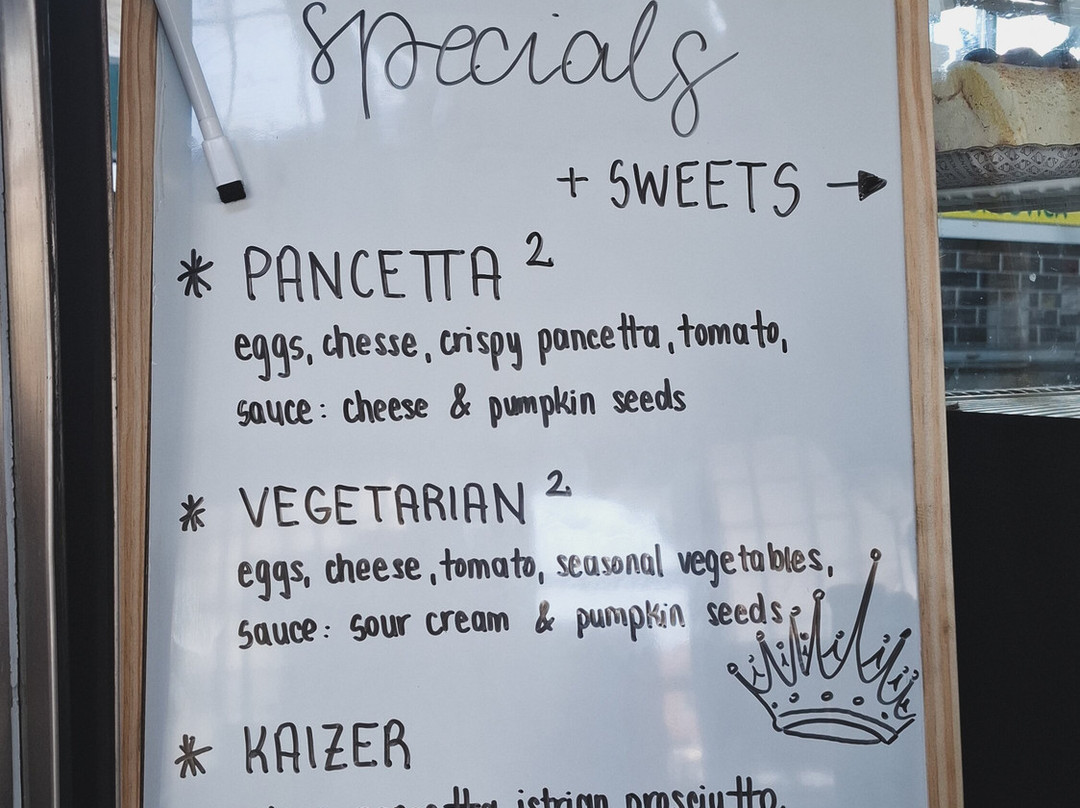 specials
+ SWEETS →
* PANCETTA ²
eggs, chesse, crispy pancetta, tomato,
sauce: cheese & pumpkin seeds
* VEGETARIAN ²
eggs, cheese, tomato, seasonal vegetables,
sauce: sour cream & pumpkin seeds
* KAIZER
istrian prosciutto,